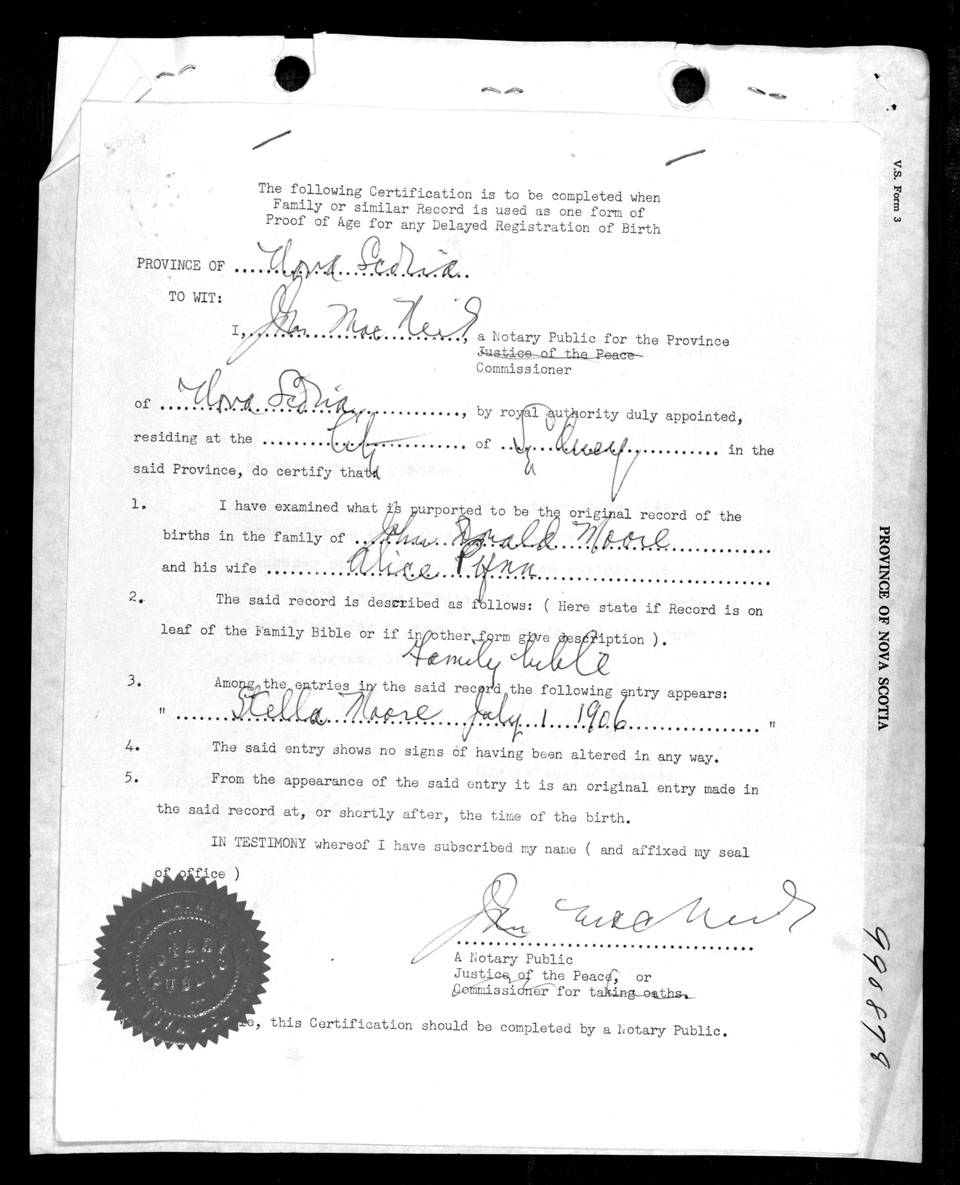 The following Certification is to be completed when
Family or similar Record is used as one form of
Proof of Age for any Delayed Registration of Birth
PROVINCE OF Nova Scotia
TO WIT:
I, John Mac Neil, a Notary Public for the Province
Justice of the Peace
Commissioner
of Nova Scotia, by royal authority duly appointed,
residing at the City of Sydney in the
said Province, do certify that
1. I have examined what is purported to be the original record of the
births in the family of John Donald Moore
and his wife Alice Pynn
2. The said record is described as follows: ( Here state if Record is on
leaf of the Family Bible or if in other form give description ).
Family bible
3. Among the entries in the said record the following entry appears:
" Stella Moore July 1 1906 "
4. The said entry shows no signs of having been altered in any way.
5. From the appearance of the said entry it is an original entry made in
the said record at, or shortly after, the time of the birth.
IN TESTIMONY whereof I have subscribed my name ( and affixed my seal
of office )
John Mac Neil
A Notary Public
Justice of the Peace, or
Commissioner for taking oaths.
this Certification should be completed by a Notary Public.
NOTARY
PUBLIC
V.S. Form 3
PROVINCE OF NOVA SCOTIA
990879